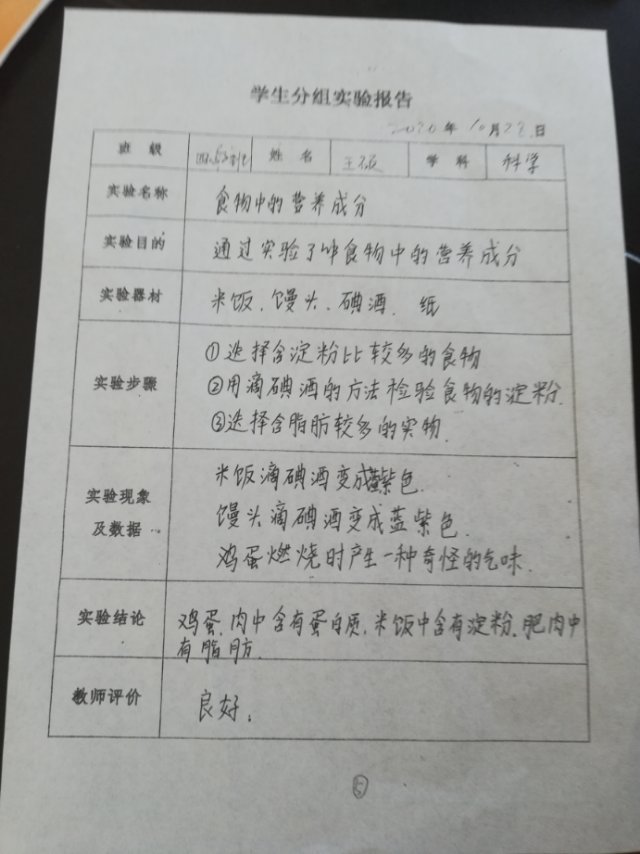 学生分组实验报告
2020年10月22日
班级 姓名 学科 科学
实验名称 食物中的营养成分
实验目的 通过实验了解食物中的营养成分
实验器材 米饭、馒头、碘酒、纸
实验步骤 ①选择含淀粉比较多的食物
②用滴碘酒的方法检验食物的淀粉.
③选择含脂肪较多的实物.
实验现象及数据 米饭滴碘酒变成蓝紫色.
馒头滴碘酒变成蓝紫色.
鸡蛋燃烧时产生一种奇怪的气味.
实验结论 鸡蛋.肉中含有蛋白质.米饭中含有淀粉.肥肉中
有脂肪.
教师评价 良好。
5